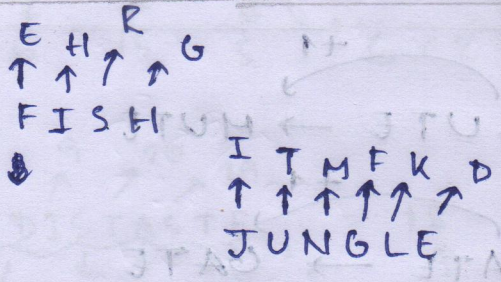 E H R G
↑ ↑ ↑ ↑
F I S H
↓
I T M F K D
↑ ↑ ↑ ↑ ↑ ↑
J U N G L E